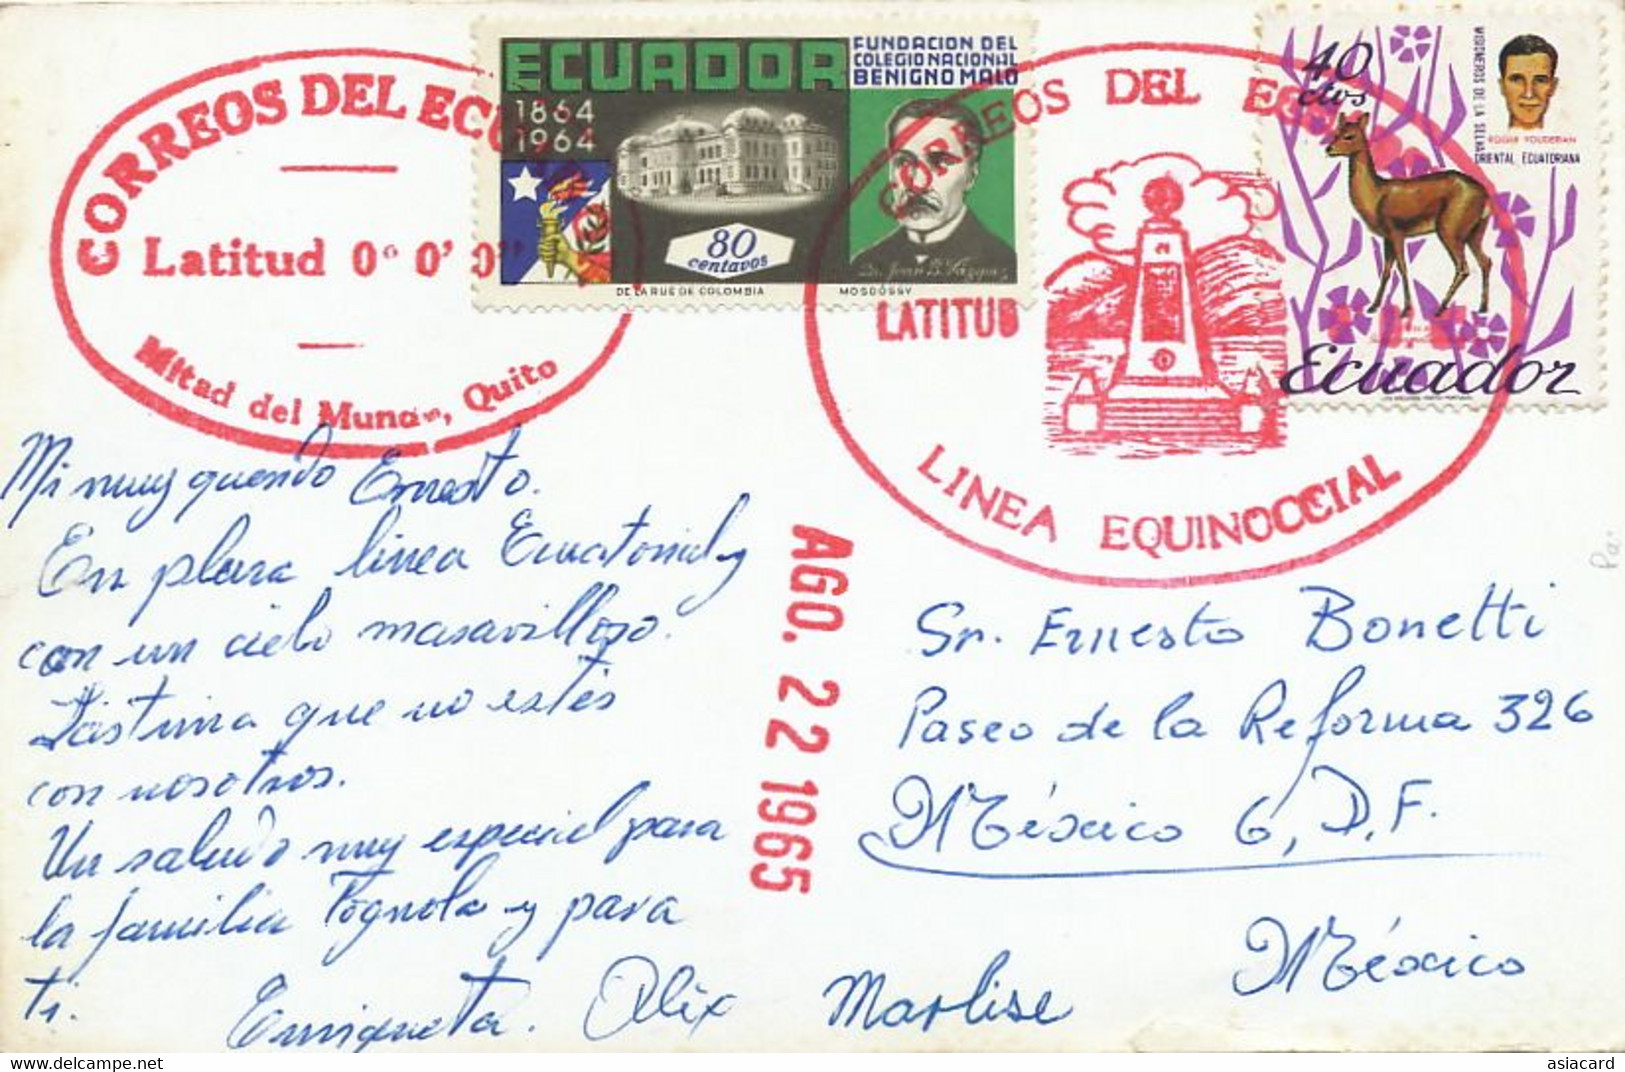 CORREOS DEL ECU
Latitud 0° 0' 0"
Mitad del Mundo, Quito
ECUADOR
1864
1964
FUNDACION DEL
COLEGIO NACIONAL
BENIGNO MALO
80
centavos
DE LA RUE DE COLOMBIA
MOSDÓSSY
CORREOS DEL EC
LATITUD
LINEA EQUINOCCIAL
40
ctvs
MISIONEROS DE LA SELVA
ORIENTAL ECUATORIANA
ROGER YOUDERIAN
Ecuador
AGO. 22 1965
Mi muy querido Ernesto.
En plena linea Ecuatorial y
con un cielo maravilloso.
Lástima que no estés
con nosotros.
Un saludo muy especial para
la familia Pognola y para
ti.
Enriqueta. Alix Marlise
Sr. Ernesto Bonetti
Paseo de la Reforma 326
México 6, D.F.
México
asiacard